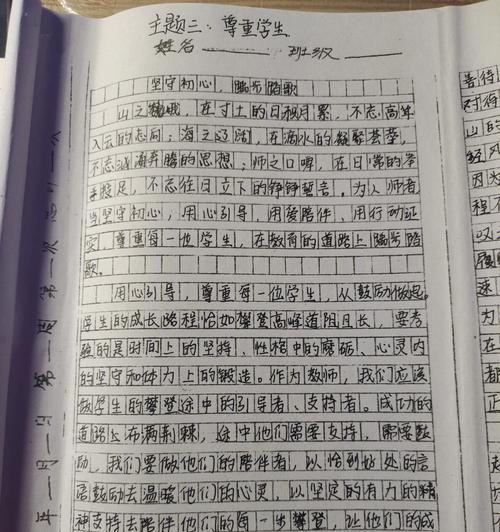 主题二：尊重学生
姓名 班级
坚守初心，踏步踏歌
山之巍峨，在寸土的日积月累，不忘高耸
入云的志向；海之辽阔，在滴水的凝聚荟萃，
不忘滋海奔腾的思想；师之口碑，在日常的举
手投足，不忘往日立下的铮铮誓言。为人师者
当坚守初心，用心引导，用爱陪伴、用行动证
实，尊重每一位学生，在教育的道路上踏步踏
歌。
用心引导，尊重每一位学生，从鼓励做起。
学生的成长路程恰如攀登高峰道阻且长，要考
验的是时间上的坚持、性格中的磨砺、心灵内
的坚守和体力上的锻造。作为教师，我们应该
做学生的攀登途中的引导者、支持者。成功的
道路上布满荆棘，途中他们需要支持，需要鼓
励，我们要做他们的陪伴者，以恰到好处的言
语鼓励去温暖他们的心灵，以坚定的有力的精
神支持去陪伴他们的每一步攀登，让他们的成
善待
对待
山的
经风
因为
程不
叹之
速
为
正